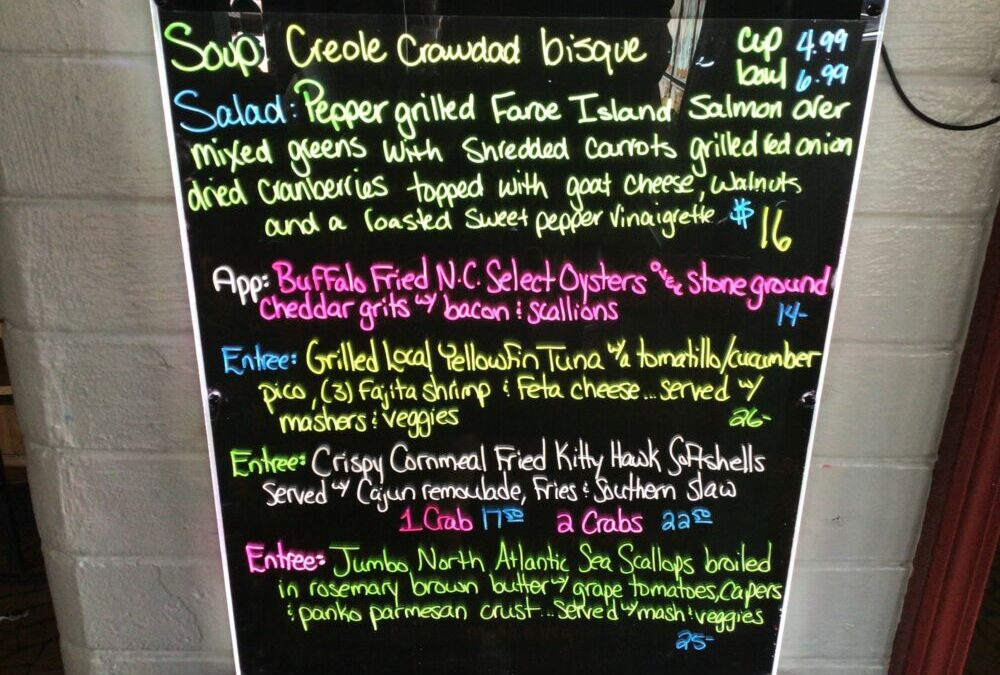 Soup: Creole Crawdad bisque cup 4.99
bowl 6.99
Salad: Pepper grilled Faroe Island Salmon over
mixed greens with shredded carrots grilled red onion
dried cranberries topped with goat cheese, walnuts
and a roasted sweet pepper vinaigrette $16
App: Buffalo Fried N.C. Select Oysters over stoneground
cheddar grits w/ bacon & scallions 14-
Entree: Grilled Local Yellowfin Tuna w/a tomatillo/cucumber
pico, (3) Fajita shrimp & Feta cheese... served w/
mashers & veggies 26-
Entree: Crispy Cornmeal Fried Kitty Hawk Softshells
served w/ Cajun remoulade, Fries & Southern slaw
1 Crab 17.50 2 Crabs 22.50
Entree: Jumbo North Atlantic Sea Scallops broiled
in rosemary brown butter w/ grape tomatoes, capers
& panko parmesan crust... served w/ mash & veggies
25-